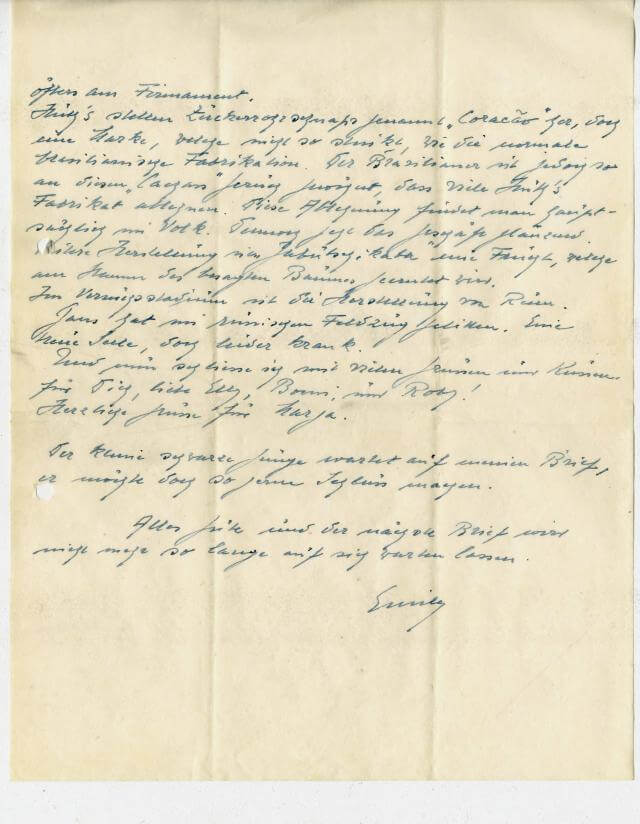 öfters am Firmament.
stellen Zuckerrohrschnaps genannt „Coracão" her, doch
eine Marke, welche nicht so stinkt, wie die normale
brasilianische Fabrikation. Der Brasilianer ist jedoch so
an diesen Geruch gewöhnt, dass viele
Fabrikat ablehnen. Diese Ablehnung findet man haupt-
sächlich im Volk. Dennoch geht das Geschäft glänzend.
Herstellung von eine Frucht, welche
am Stamm des besagten Baumes geerntet wird.
Im Versuchsstadium ist die Herstellung von
hat im russischen Feldzug gelitten. Eine
treue Seele, doch leider krank.
Und nun schliesse ich mit vielen Grüssen und Küssen
für Dich, liebe Elly, und
Herzliche Grüsse für
Der kleine schwarze Junge wartet auf meinen Brief,
er möchte doch so gerne Schluss machen.
Alles Gute und der nächste Brief wird
nicht mehr so lange auf sich warten lassen.